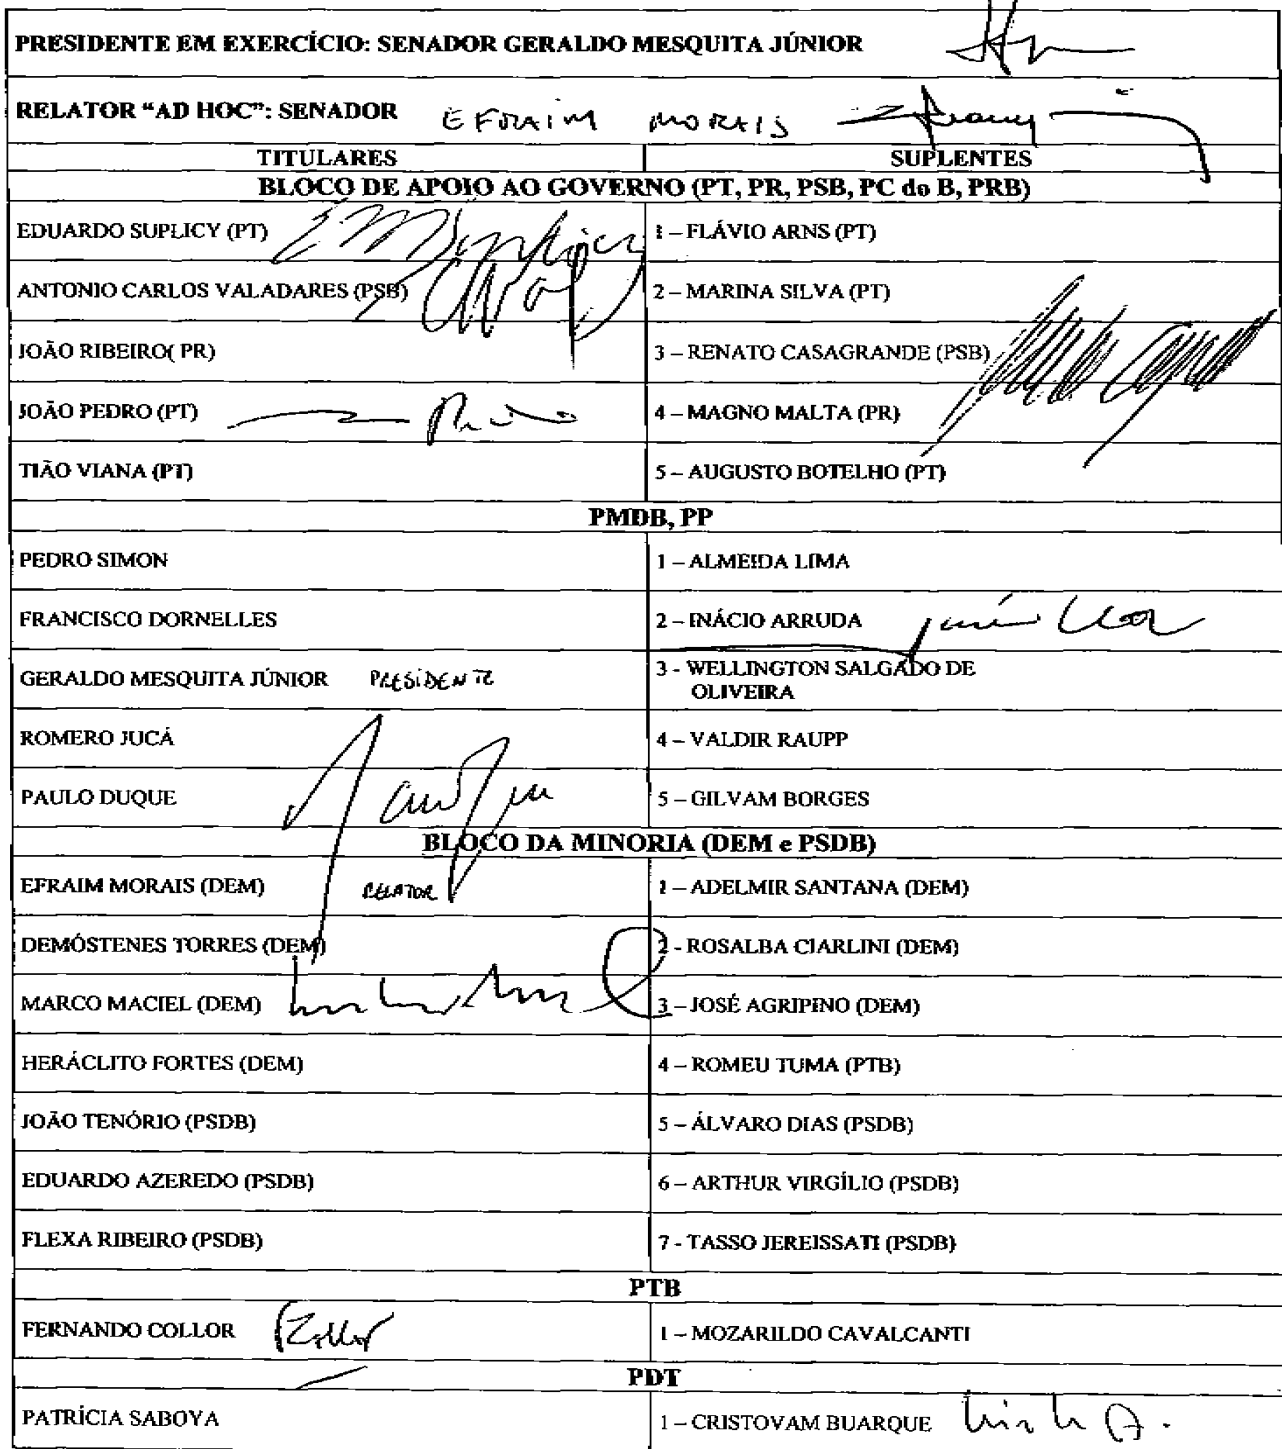 PRESIDENTE EM EXERCÍCIO: SENADOR GERALDO MESQUITA JÚNIOR
RELATOR “AD HOC”: SENADOR EFRAIM MORAIS
TITULARES SUPLENTES
BLOCO DE APOIO AO GOVERNO (PT, PR, PSB, PC do B, PRB)
EDUARDO SUPLICY (PT) 1 – FLÁVIO ARNS (PT)
ANTONIO CARLOS VALADARES (PSB) 2 – MARINA SILVA (PT)
JOÃO RIBEIRO( PR) 3 – RENATO CASAGRANDE (PSB)
JOÃO PEDRO (PT) 4 – MAGNO MALTA (PR)
TIÃO VIANA (PT) 5 – AUGUSTO BOTELHO (PT)
PMDB, PP
PEDRO SIMON 1 – ALMEIDA LIMA
FRANCISCO DORNELLES 2 – INÁCIO ARRUDA
GERALDO MESQUITA JÚNIOR PRESIDENTE 3 - WELLINGTON SALGADO DE
OLIVEIRA
ROMERO JUCÁ 4 – VALDIR RAUPP
PAULO DUQUE 5 – GILVAM BORGES
BLOCO DA MINORIA (DEM e PSDB)
EFRAIM MORAIS (DEM) RELATOR 1 – ADELMIR SANTANA (DEM)
DEMÓSTENES TORRES (DEM) 2 - ROSALBA CIARLINI (DEM)
MARCO MACIEL (DEM) 3 – JOSÉ AGRIPINO (DEM)
HERÁCLITO FORTES (DEM) 4 – ROMEU TUMA (PTB)
JOÃO TENÓRIO (PSDB) 5 – ÁLVARO DIAS (PSDB)
EDUARDO AZEREDO (PSDB) 6 – ARTHUR VIRGÍLIO (PSDB)
FLEXA RIBEIRO (PSDB) 7 - TASSO JEREISSATI (PSDB)
PTB
FERNANDO COLLOR 1 – MOZARILDO CAVALCANTI
PDT
PATRÍCIA SABOYA 1 – CRISTOVAM BUARQUE